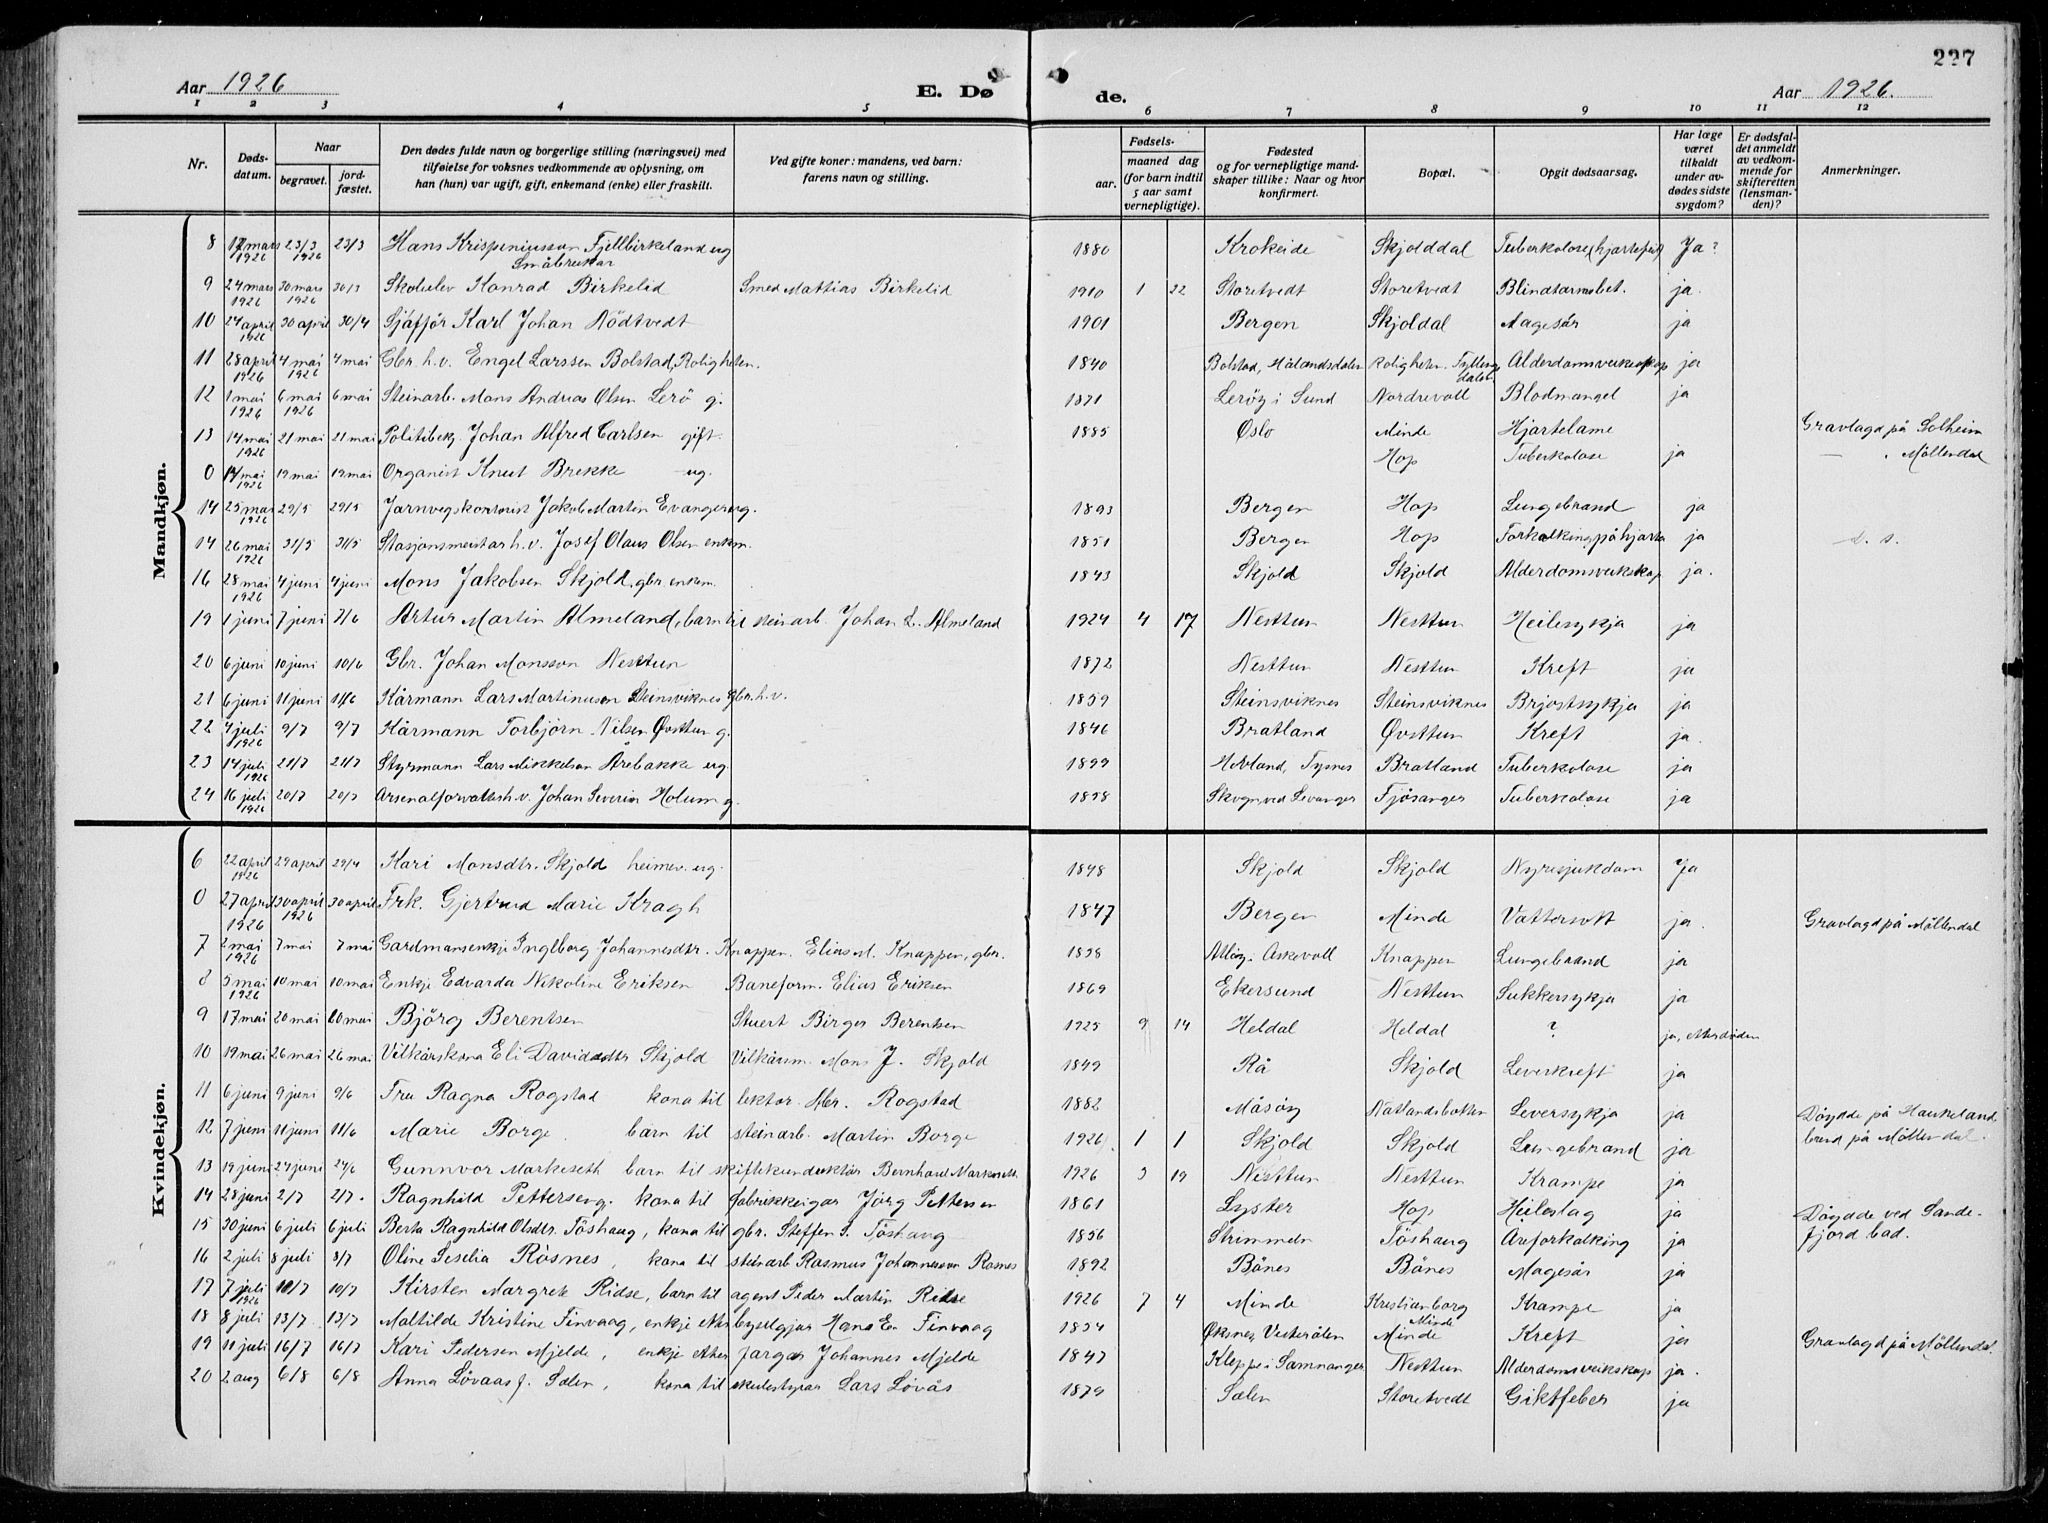 227
Aar 1926
E. Dø
de.
Aar 1926.
1 2 3 4 5 6 7 8 9 10 11 12
Nr.
Døds-datum.
Naar
begravet.
jord-fæstet.
Den dødes fulde navn og borgerlige stilling (næringsvei) med
tilføielse for voksnes vedkommende av oplysning, om
han (hun) var ugift, gift, enkemand (enke) eller fraskilt.
Ved gifte koner: mandens, ved barn:
farens navn og stilling.
Fødsels-
aar.
maaned dag
(for barn indtil
5 aar samt
vernepligtige).
Fødested
og for vernepligtige mand-
skaper tillike: Naar og hvor
konfirmert.
Bopæl.
Opgit dødsaarsag.
Har læge
været
tilkaldt
under av-
dødes sidste
sygdom?
Er dødsfal-
det anmeldt
av vedkom-
mende for
skifteretten
(lensman-
den)?
Anmerkninger.
Mandkjøn.
8 17 mars 1926 23/3 1926 23/3 Hans Krispeniusson Fjellbirkeland ug Småbrukar 1880 Krokeide Skjolddal Tuberkolose (hjartefeil) Ja?
9 24 mars 1926 30 mars 1926 30/3 Skoleelev Konrad Birkelid Smed Mattias Birkelid 1910 1 22 Storetvedt Storetvedt Blindtarmsbet. ja.
10 24 april 1926 30 april 30/4 Sjåffør Karl Johan Nödtvedt 1901 Bergen Skjoldal Magesår ja
11 28 april 1926 4 mai 1926 4 mai Gbr. h.v. Engel Larssen Bolstad, Roligheten. 1840 Bolstad, Hålandsdalen Roligheten. Fyllingsdalen Alderdomsveikskap ja
12 1 mai 1926 6 mai 1926 6 mai Steinarb. Mons Andreas Olsen Lerö g. 1871 Leröy i Sund Nordrevoll Blodmangel ja
13 14 mai 1926 21 mai 21 mai Politibetj. Johan Alfred Carlsen gift. 1885 Oslo Minde Hjartelame Gravlagd på Solheim
0 14 mai 1926 19 mai 19 mai Organist Knut Brekke ug. Hop Tuberkolose ja — " . Möllendal
14 25 mai 1926 29/5 29/5 Jarnvegskontorist Jakob Martin Evanger ug. 1893 Bergen Hop Lungebrand ja
14 26 mai 1926 31/5 31/5 Stasjonsmeistar h.v. Josef Olaus Olsen enkm. 1851 Bergen Hop Forkalking på hjarta ja d. s.
16 28 mai 1926 4 juni 4 juni Mons Jakobsen Skjold, gbr. enkem. 1843 Skjold Skjold Alderdomsveikskap ja.
19 1 juni 7 juni 7/6 Artur Martin Almeland, barn til steinarb. Johan L. Almeland 1924 4 17 Nesttun Nesttun Heilesykja ja
20 6 juni 10 juni 10/6 Gbr. Johan Monsson Nesttun 1872 Nesttun Nesttun Kreft ja
21 6 juni 11 juni 11/6 Kårmann Lars Martinusen Steinsviknes Gbr. h.v. 1859 Steinsviknes Steinsviknes Brjostsykja ja
22 4 juli 1926 9/7 9/7 Kårmann Torbjörn Nilsen Øvsttun g. 1846 Bratland Øvsttun Kreft ja.
23 14 juli 1926 21/7 21/7 Styrmann Lars Mikkelsen Årebakke ug. 1899 Hovland, Tysnes Bratland Tuberkolose ja
24 16 juli 1926 20/7 20/7 Arsenalforvalter h.v. Johan Severin Holum g. 1858 Skogn ved Levanger Fjösanger Tuberkolose ja
Kvindekjøn.
6 22 april 1926 29 april 29/4 Kari Monsdtr. Skjold heimev. ug. 1848 Skjold Skjold Nyresjukdom Ja
0 27 april 1926 30 april 1926 30 april Frk. Gjertrud Marie Kragh 1847 Bergen Minde Vattersott ja. Gravlagd på Möllendal
7 2 mai 1926 7 mai 7 mai Gardmansenkje Ingeborg Johannesdtr. Knappen. Elias M. Knappen, gbr. 1838 Atlöy i Askevoll Knappen Lungebrand ja
8 5 mai 1926 10 mai 10 mai Enkje Edvarda Nikoline Eriksen Baneform. Elias Eriksen 1869 Ekersund Nesttun Sukkersykja ja
9 17 mai 20 mai 20 mai Björg Berentsen Stuert Birger Berentsen 1925 9 14 Heldal Heldal ? ja,
10 19 mai 26 mai 26 mai Vilkårskona Eli Davidsdtr Skjold Vilkårsm. Mons J. Skjold 1849 Rå Skjold Leverkreft ja
11 6 juni 9 juni 9/6 Fru Ragna Rogstad kona til lektor Rogstad 1882 Måsöy Natlandsbotten Leversykja ja Döydde på Haukeland
12 7 juni 11 juni 11/6 Marie Borge. barn til steinarb. Martin Borge 1926 1 1 Skjold Skjold Lungebrand ja på Möllendal.
13 19 juni 24 juni 24/6 Gunnvor Markeseth barn til skiftekunduktör Bernhard Markeseth 1926 3 19 Nesttun Nesttun Krampe ja
14 28 juni 2/7 2/7. Ragnhild Pettersen g. kona til fabrikkeigar Jörg Pettersen 1861 Lyster Hop Heileslag ja Döydde ved Sande-
15 30 juni 6 juli 6 juli Berta Ragnhild Olsdtr. Töshaug, kona til gbr. Steffen S. Töshaug 1856 Strimmeln Töshaug Åreforkalking ja fjord bad.
16 2 juli 8 juli 8/7 Oline Seselia Rösnes, kona til steinarb Rasmus Johannesson Rosnes 1892 Bönes Bönes Magesår ja
17 7 juli 1926 10/7 10/7 Kirsten Margrete Ridse, barn til agent Peder Martin Ridse 1926 7 4 Minde Kristianborg Minde Krampe ja
18 8 juli 13/7 13/7 Matilde Kristine Finvaag, enkje etter Hans E. Finvaag 1854 Øksnes, Vesterålen Minde Kreft ja
19 11 juli 16/7 16/7 Kari Pedersen Mjelde, enkje etter fargar Johannes Mjelde 1847 Kleppe i Samnanger Nesttun Alderdomsveikskap ja. Gravlagd på Möllendal.
20 2 aug 6/8 6/8 Anna Lövaas f. Sælen, kona til skulestyrar Lars Lövås 1879 Sælen Storetvedt Giktfeber ja